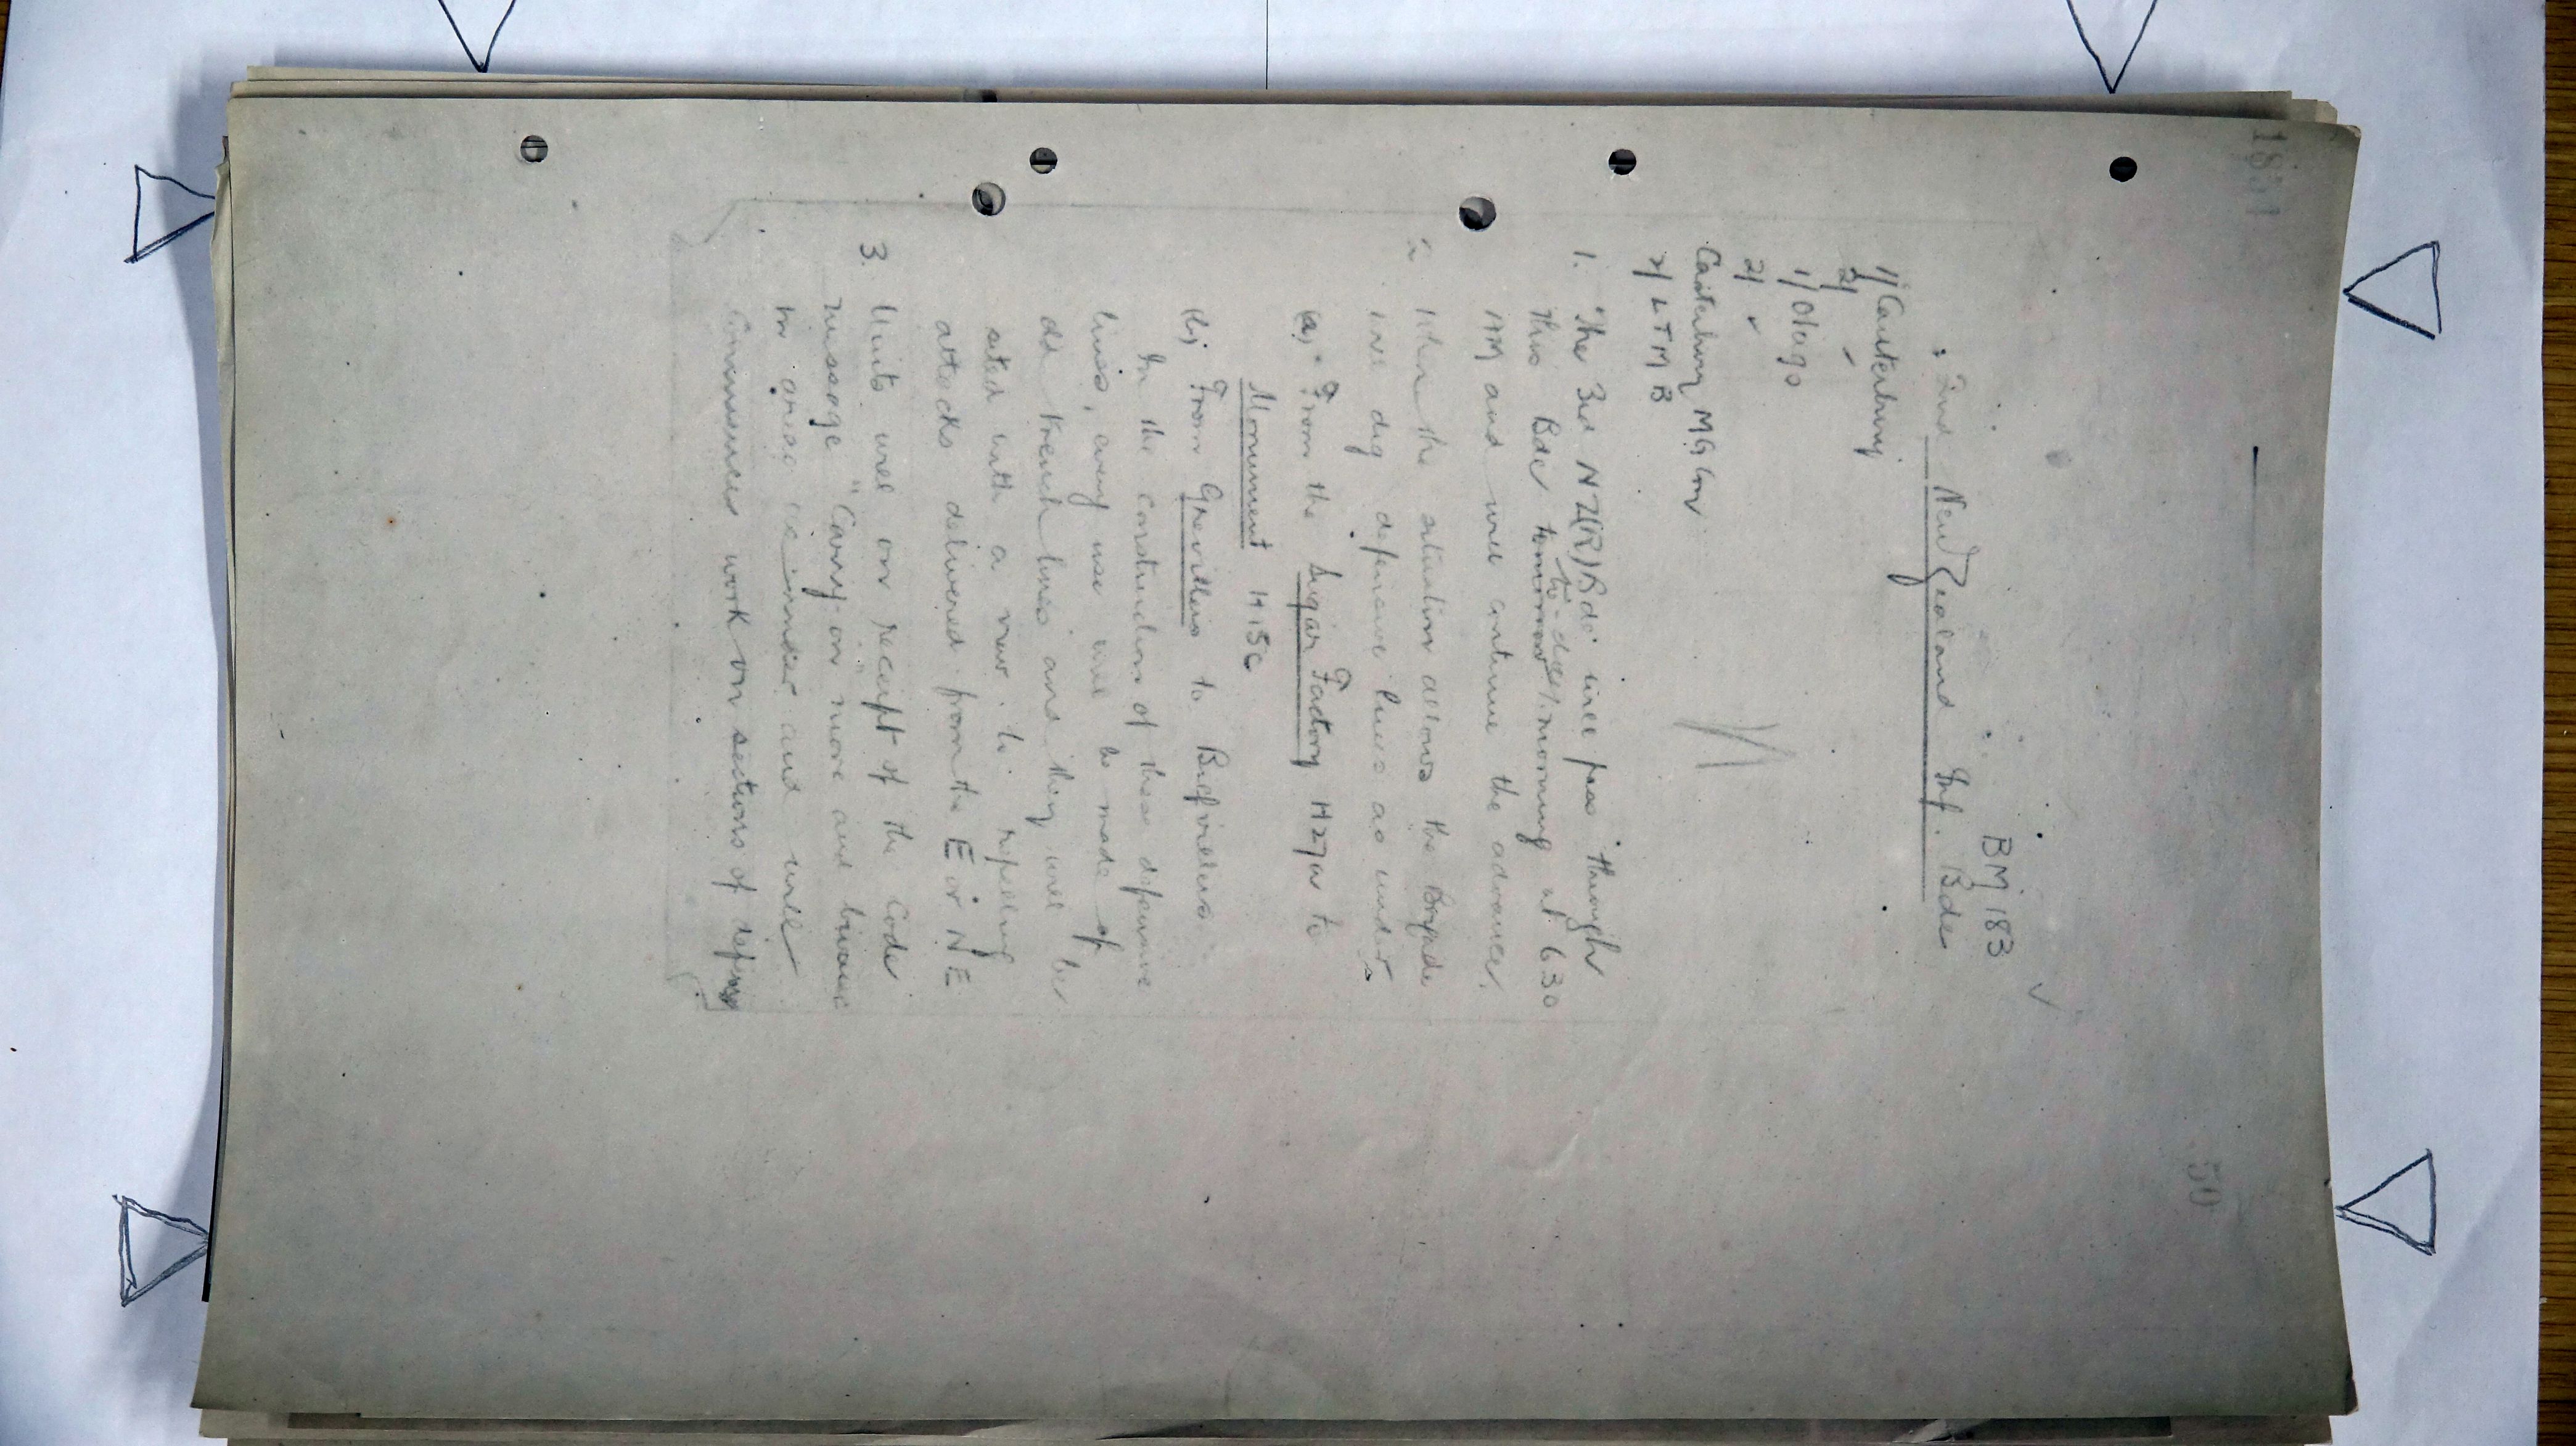 1851
50
BM 183
2nd New Zealand Inf. Bde
1/ Canterbury
2/ "
1/ Otago
2/ "
Canterbury MG Coy
2/ LTMB
1. The 3rd NZ(R) Bde will pass through
to-day
this Bde tomorrow morning at 6 30
AM and will continue the advance.
2 When the situation allows the Brigade
will dig defensive lines as under.
(a) From the Sugar Factory H27a to
Monument H15c
(b) From Grevillers to Biefvillers
In the construction of these defensive
lines, every use will be made of
old trench lines and they will be
sited with a view to repelling
attacks delivered from the E or NE
3. Units will on receipt of the Code
message "Carry on" move and bivouac
in areas and will
commence work on sections of defence